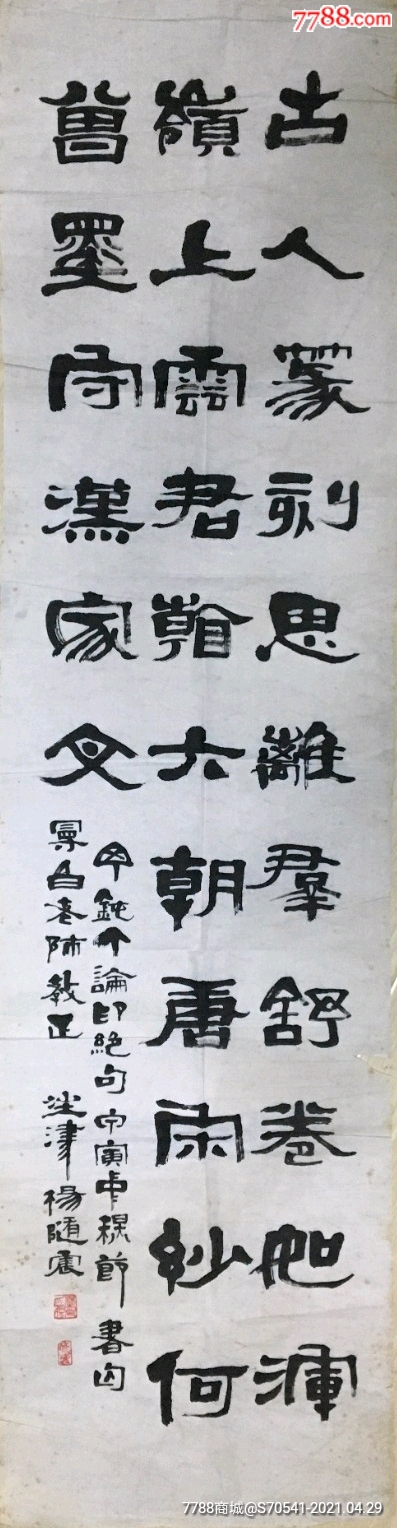 7788.com
古人篆刻思離群舒卷如渾
嶺上雲君翰六朝唐宋妙何
曾墨守漢家文
丁鈍丁論印絕句甲寅中穐節書以
景白老師教正 津楊隨震
7788商城@S70541-2021.04.29